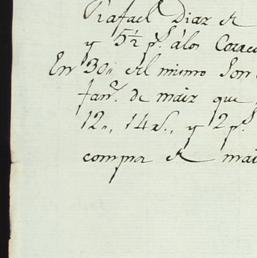 Rafael Diaz a
y 5½ p.s á los
En 30,, del mismo
fan.s de maiz que
12,, 14 r.s, y 2 p.s
compra de mai